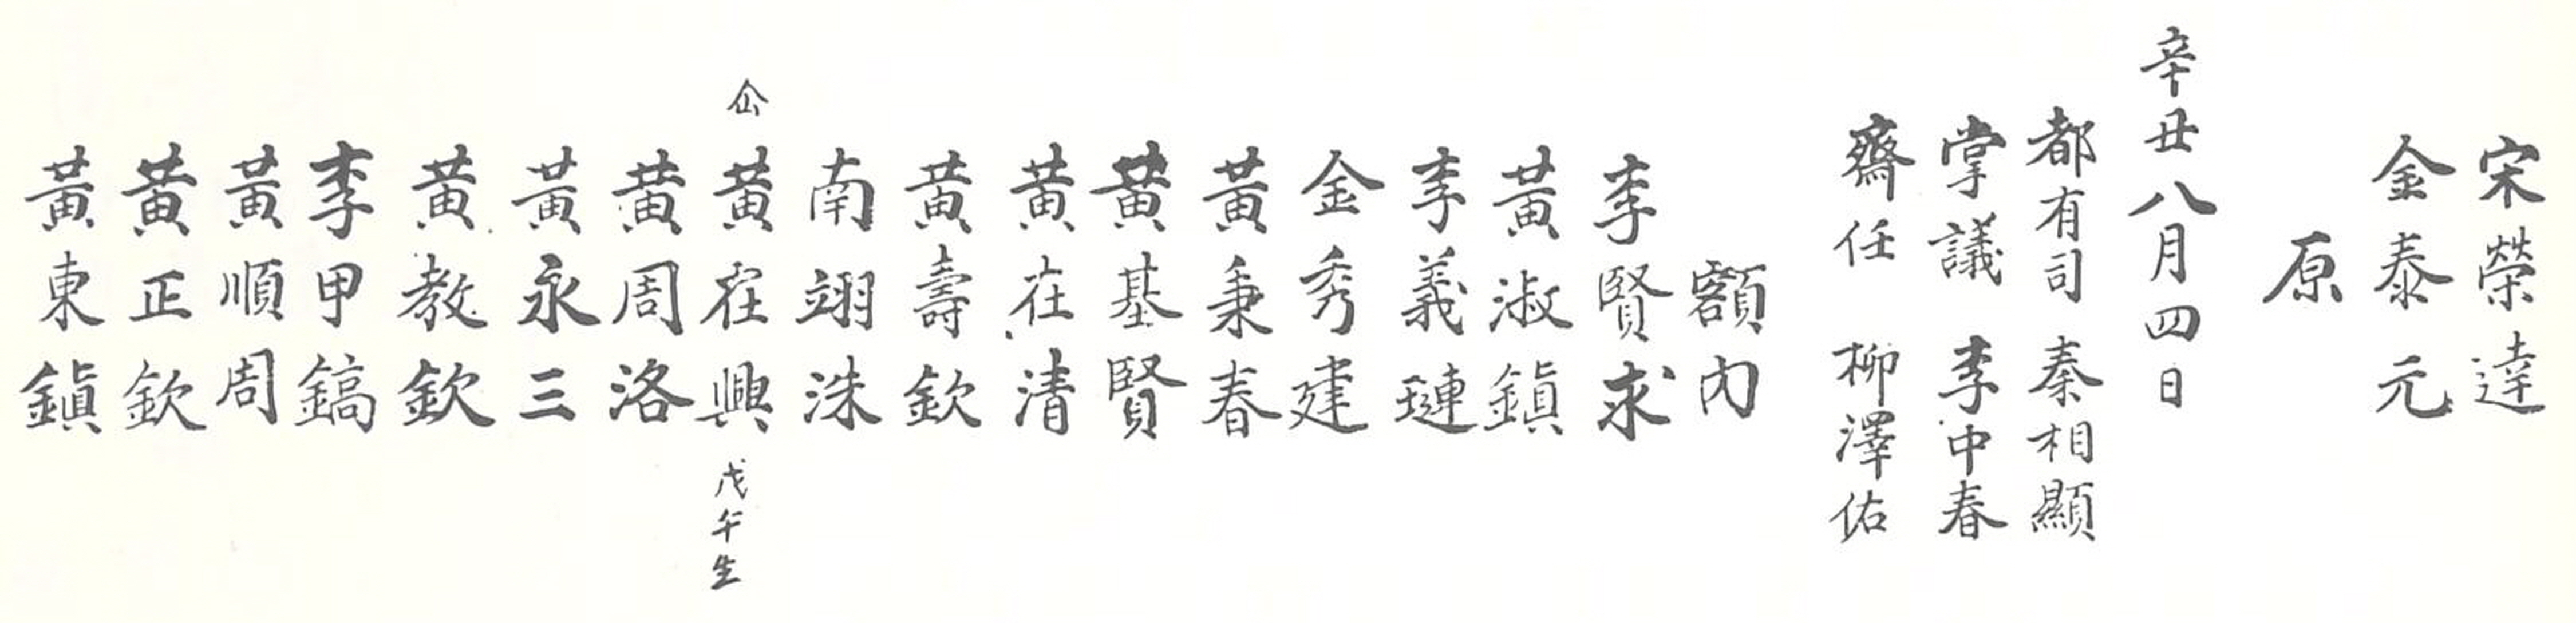 宋榮達
金泰元
原
辛丑八月四日
都有司 秦相顯
掌議 李中春
齋任 柳澤佑
額內
李賢求
黃淑鎭
李義璉
金秀建
黃秉春
黃基賢
黃在清
黃壽欽
南翊洙
仚 黃在興 戊午生
黃周洛
黃永三
黃敎欽
李甲鎬
黃順周
黃正欽
黃東鎭